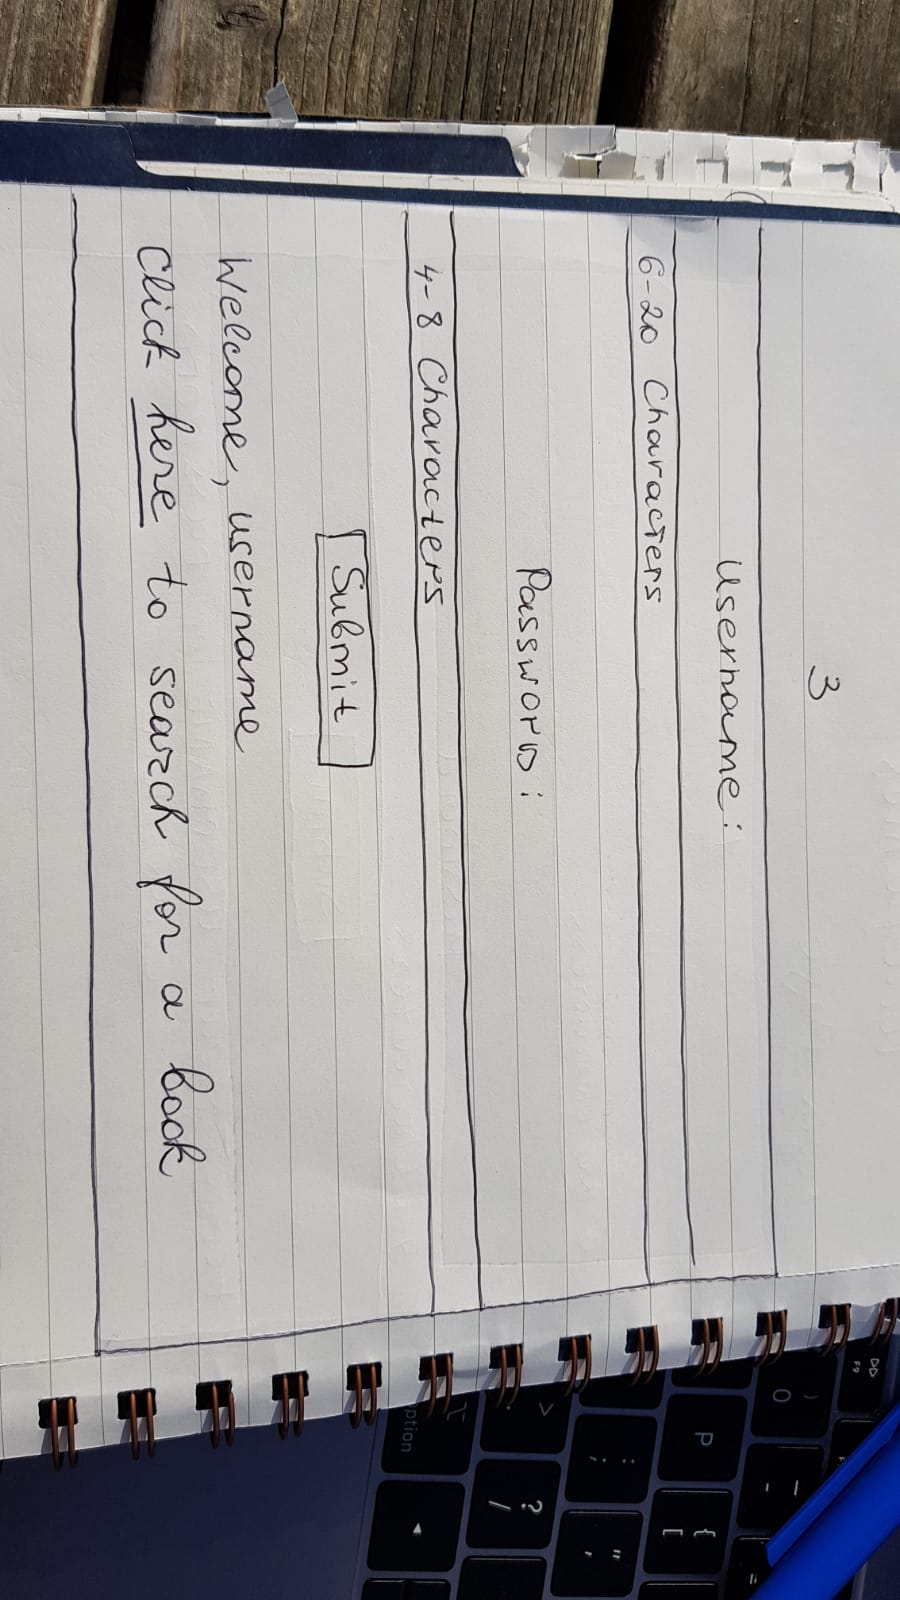 3
Username:
6-20 Characters
Password:
4-8 Characters
Submit
Welcome, username
Click here to search for a book
F9
)
0
P
{
[
:
;
"
'
>
.
?
/
ption